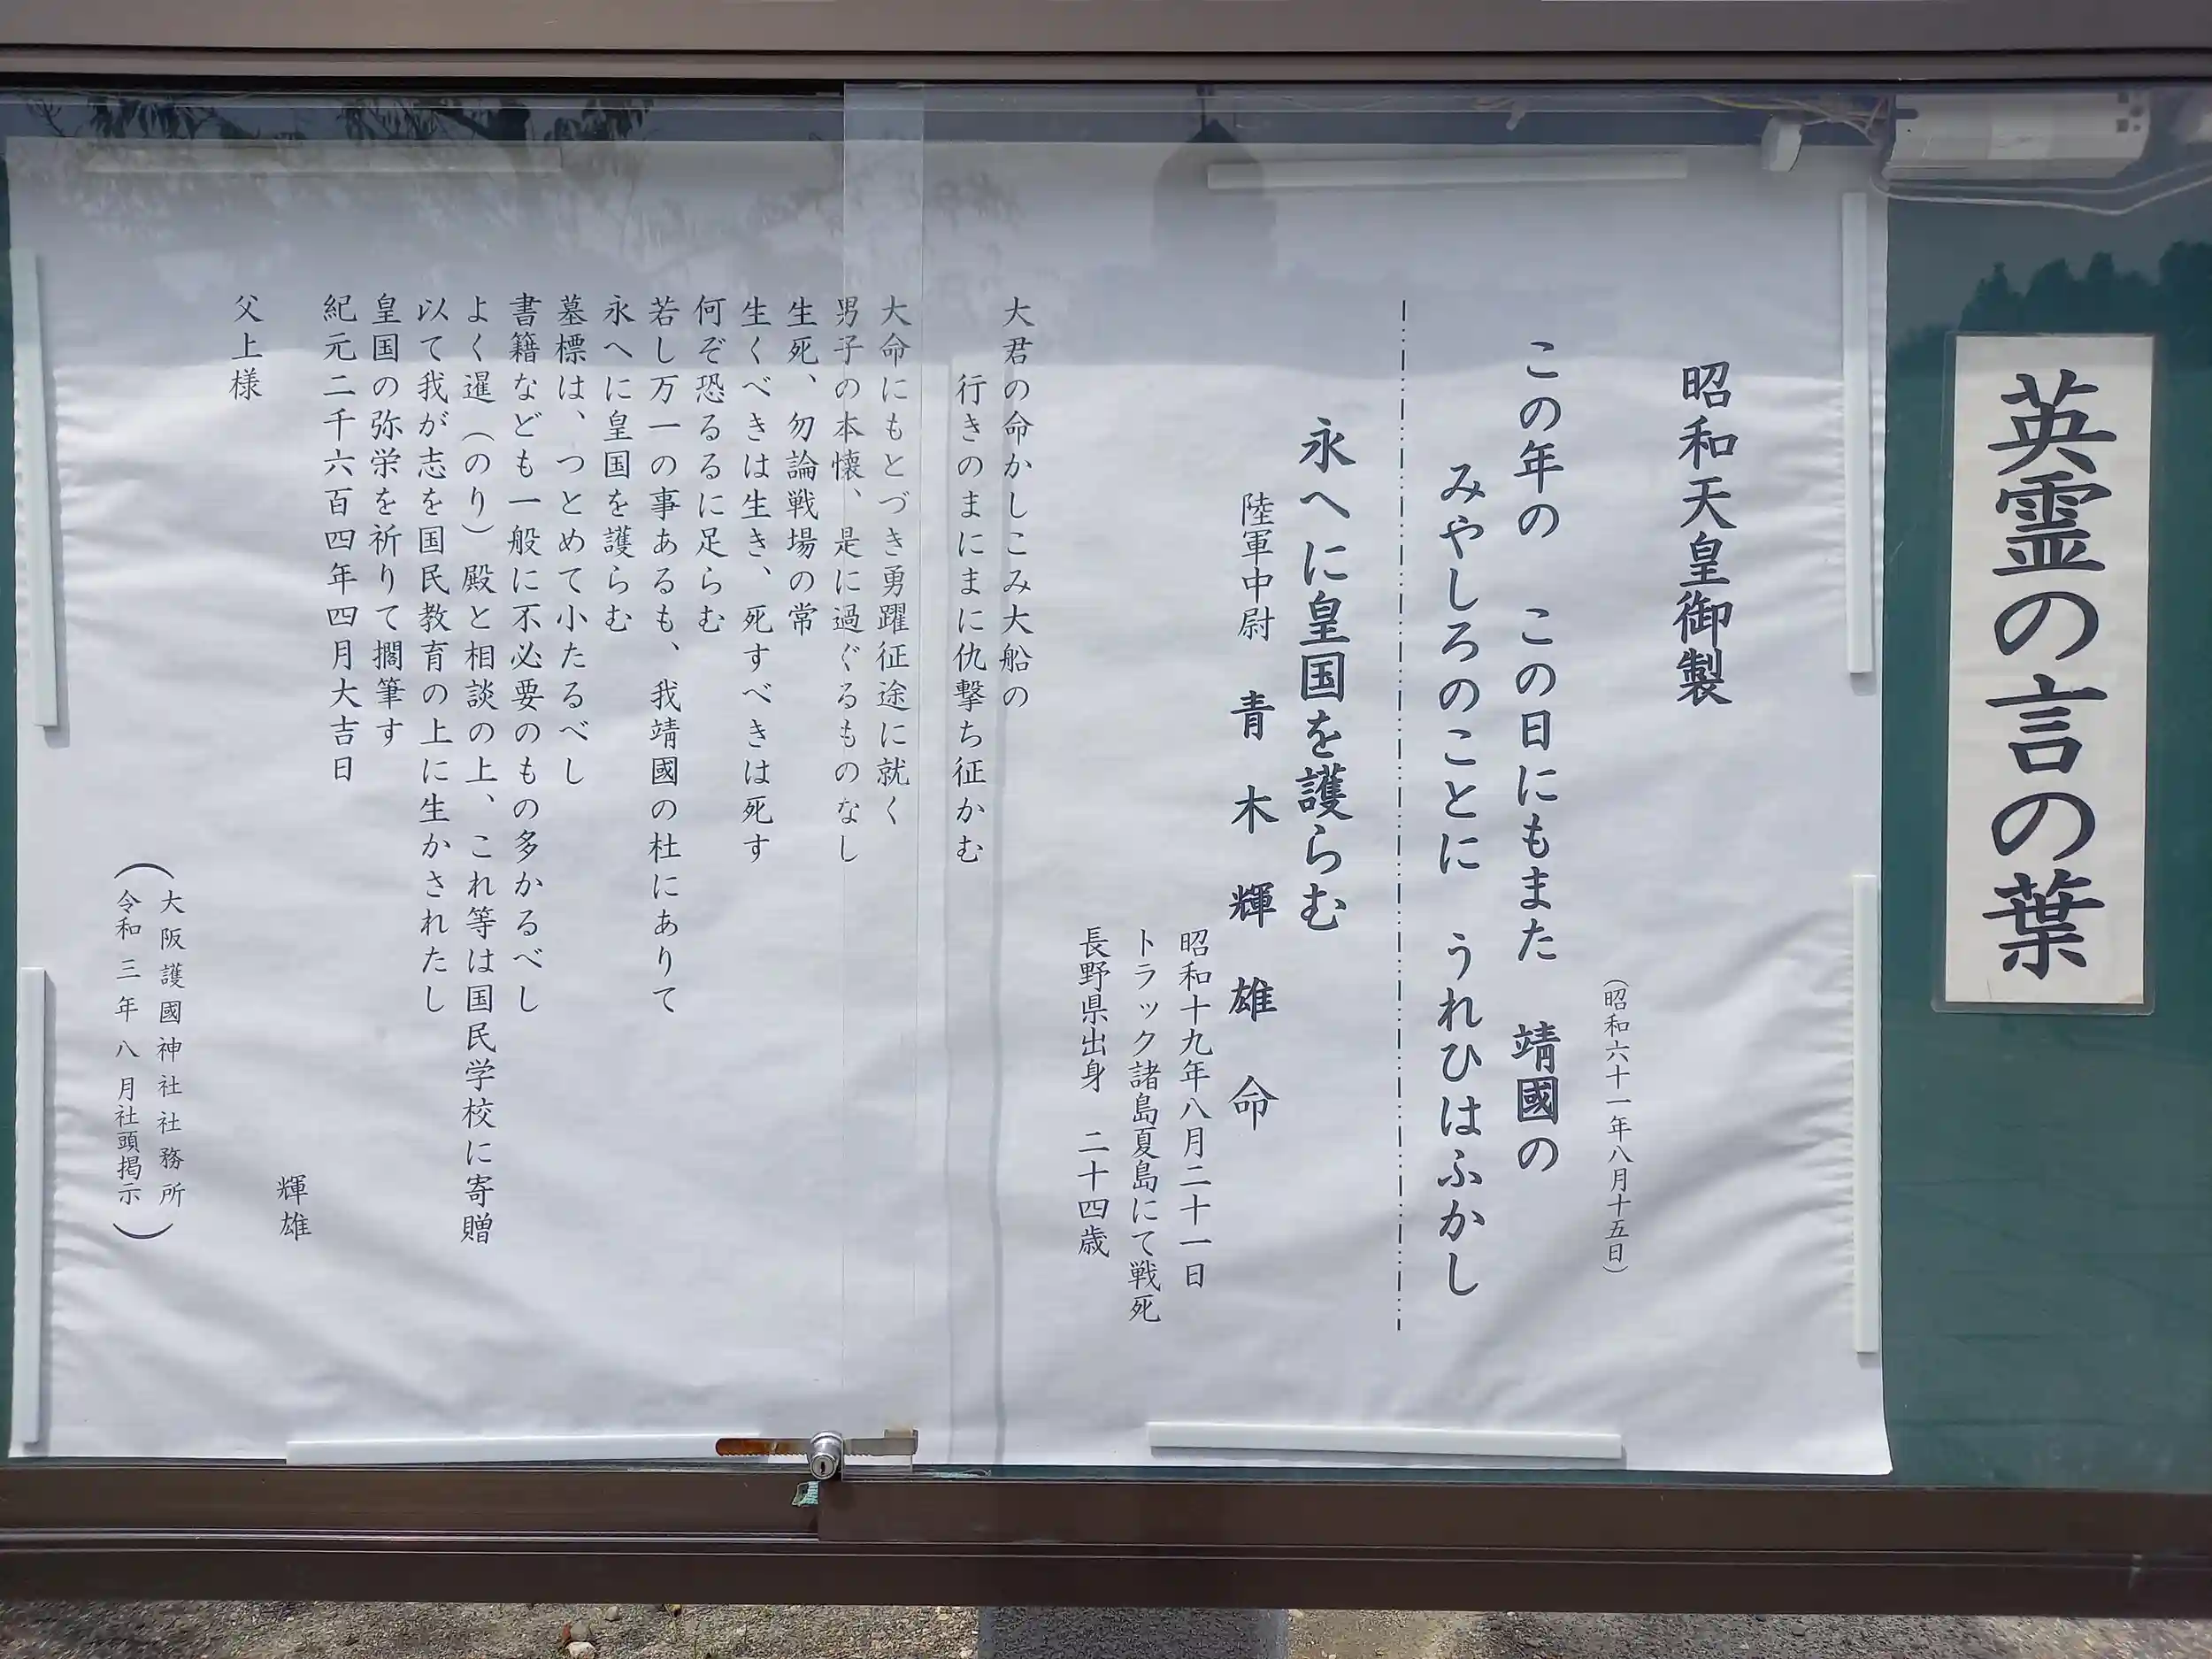 英霊の言の葉
昭和天皇御製
（昭和六十一年八月十五日）
この年の　この日にもまた　靖國の
みやしろのことに　うれひはふかし
永へに皇国を護らむ
陸軍中尉　青木輝雄命
昭和十九年八月二十一日
トラック諸島夏島にて戦死
長野県出身　二十四歳
大君の命かしこみ大船の
行きのまにまに仇撃ち征かむ
大命にもとづき勇躍征途に就く
男子の本懐、是に過ぐるものなし
生死、勿論戦場の常
生くべきは生き、死すべきは死す
何ぞ恐るるに足らむ
若し万一の事あるも、我靖國の杜にありて
永へに皇国を護らむ
墓標は、つとめて小たるべし
書籍なども一般に不必要のもの多かるべし
よく暹（のり）殿と相談の上、これ等は国民学校に寄贈
以て我が志を国民教育の上に生かされたし
皇国の弥栄を祈りて擱筆す
紀元二千六百四年四月大吉日
輝雄
父上様
（大阪護國神社社務所
令和三年八月社頭掲示）